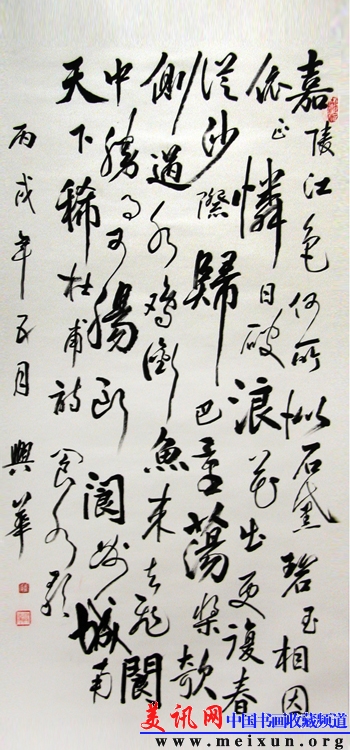 嘉陵江色何所似石黛碧玉相因
依正憐日破浪花出更復春
從沙際歸巴童蕩槳欹
側過水鸡銜魚来去飛閬
中勝事可腸斷閬州城南
天下稀杜甫詩閬水歌
丙戌年五月興華
美讯网 中国书画收藏频道
www.meixun.org